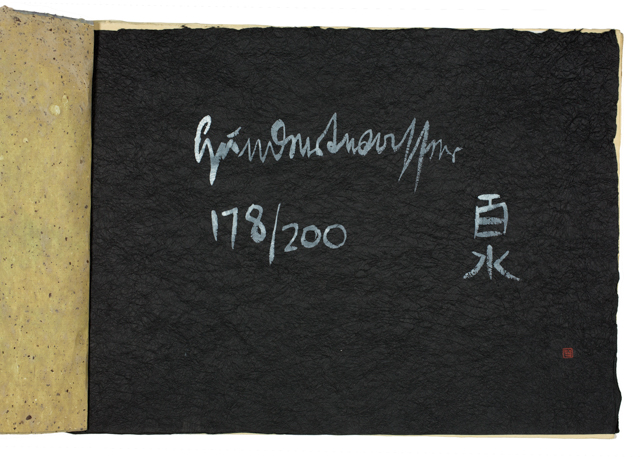 Hundertwasser
178/200
百
水